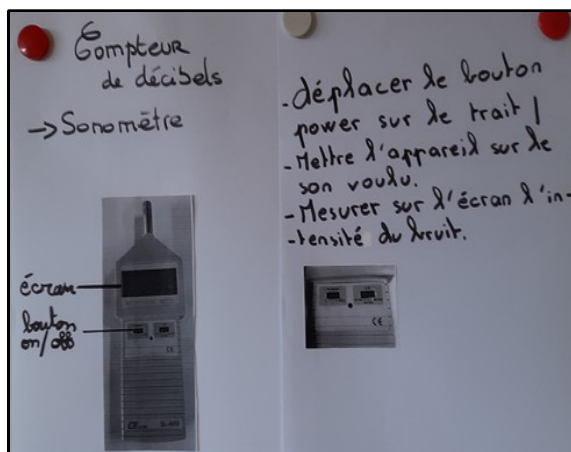 Compteur
de décibels
→ Sonomètre
écran
bouton
on/off
CE
- déplacer le bouton
power sur le trait |
- Mettre l'appareil sur le
son voulu.
- Mesurer sur l'écran l'in-
-tensité du bruit.
CE